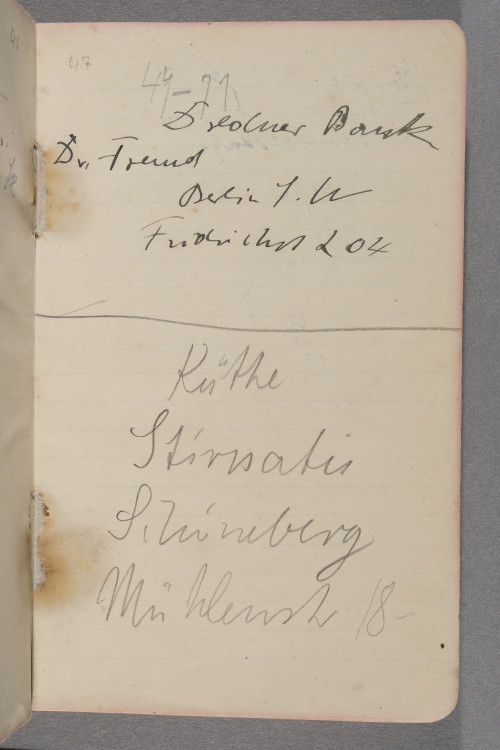 47
44-71
Dresdner Bank
Dr. Freund
Berlin S. W
Friedrichst 204
Käthe
Stirnatis
Schöneberg
Mühlenstr 18-